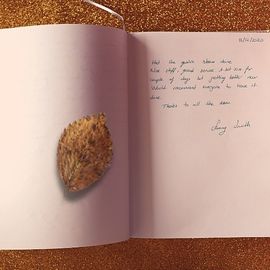 Had the guides sleeve done.
Nice staff, good service. A bit sore for
couple of days but getting better now
Would recommend everyone to have it
done.
Thanks to all the team
Smith